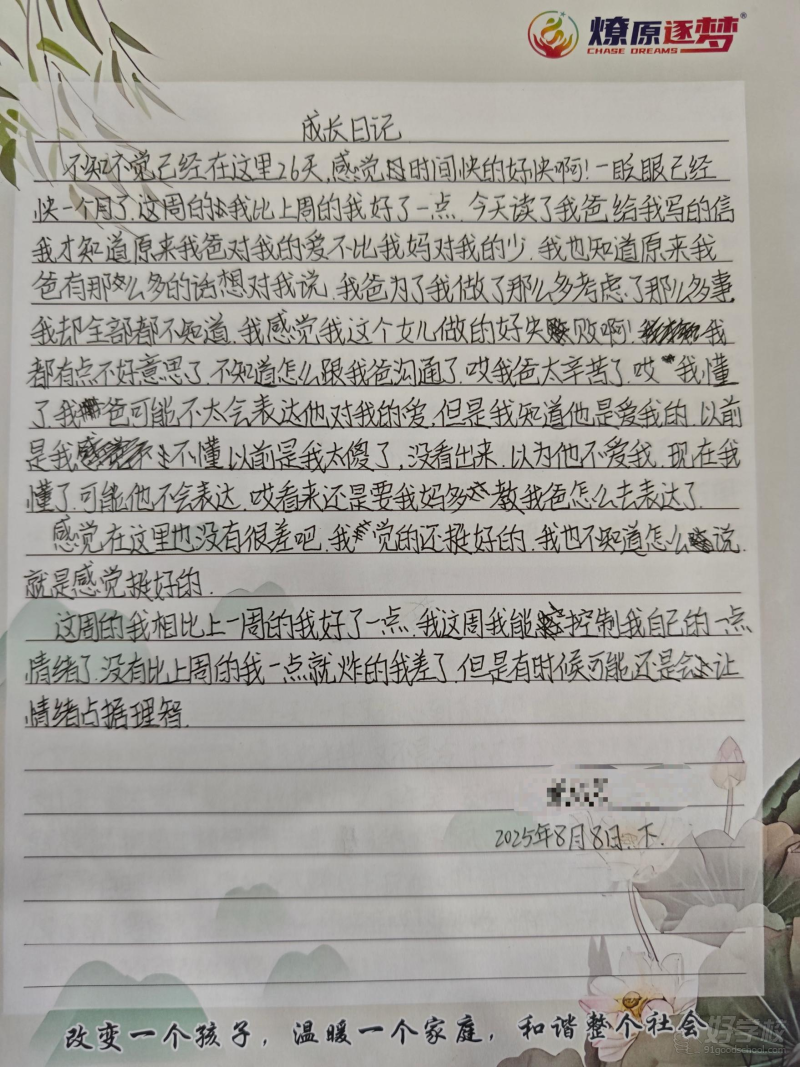 燎原逐梦®
CHASE DREAMS
成长日记
不知不觉已经在这里26天,感觉时间快的好快啊!一眨眼已经
快一个月了.这周的我比上周的我好了一点.今天读了我爸给我写的信
我才知道原来我爸对我的爱不比我妈对我的少.我也知道原来我
爸有那么多的话想对我说.我爸为了我做了那么多考虑.了那么多事
我却全部都不知道.我感觉我这个女儿做的好失败啊!我
都有点不好意思了.不知道怎么跟我爸沟通了.哎我爸太辛苦了.哎我懂
了.我爸可能不太会表达他对我的爱.但是我知道他是爱我的.以前
是我不懂以前是我太傻了,没看出来.以为他不爱我.现在我
懂了.可能他不会表达.哎看来还是要我妈多教我爸怎么去表达了.
感觉在这里也没有很差吧.我觉的还挺好的.我也不知道怎么说.
就是感觉挺好的.
这周的我相比上一周的我好了一点.我这周我能控制我自己的一点
情绪了.没有比上周的我一点就炸的我差了.但是有时候可能还是会让
情绪占据理智.
2025年8月8日.下.
改变一个孩子，温暖一个家庭，和谐整个社会
好学校
91goodschool.com